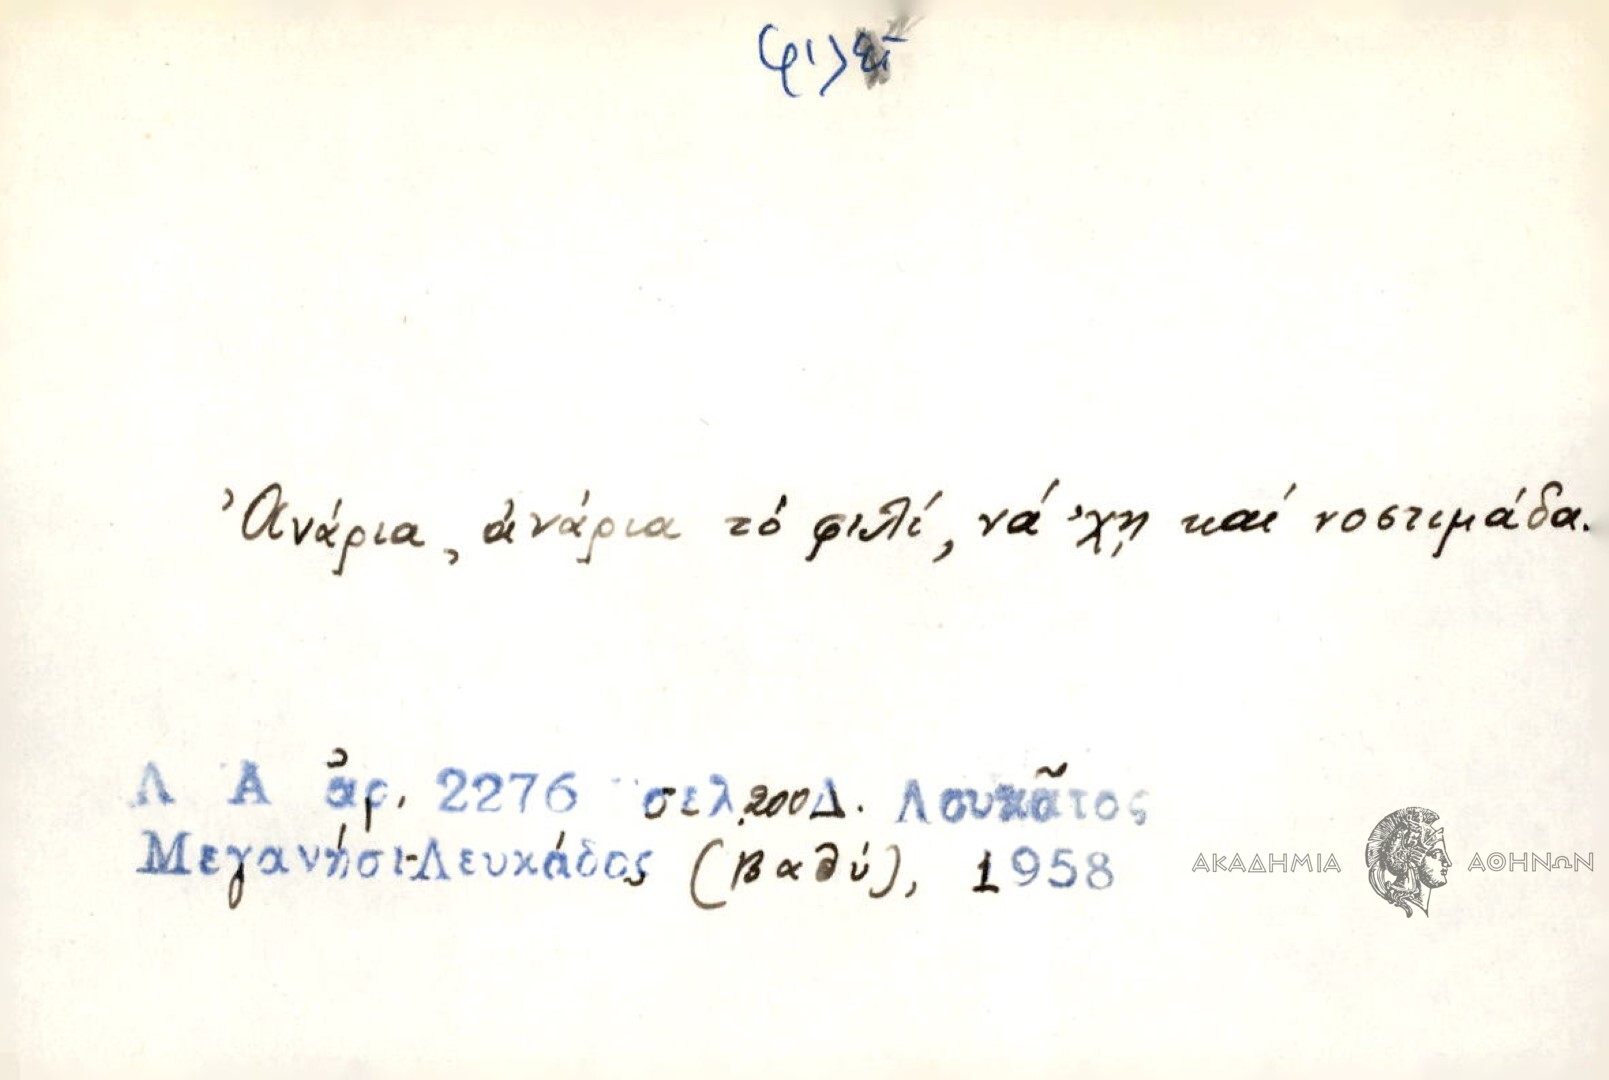 φιλί
Ἀνάρια, ἀνάρια τό φιλί, νά ’χῃ καί νοστιμάδα.
Λ Α ἀρ. 2276 σελ. 200 Δ. Λουκᾶτος
Μεγανήσι-Λευκάδος (Βαθύ), 1958
ΑΚΑΔΗΜΙΑ ΑΘΗΝΩΝ